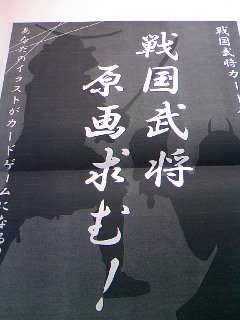 戦国武将カード
戦国武将
原画求む！
あなたのイラストがカードゲームになる